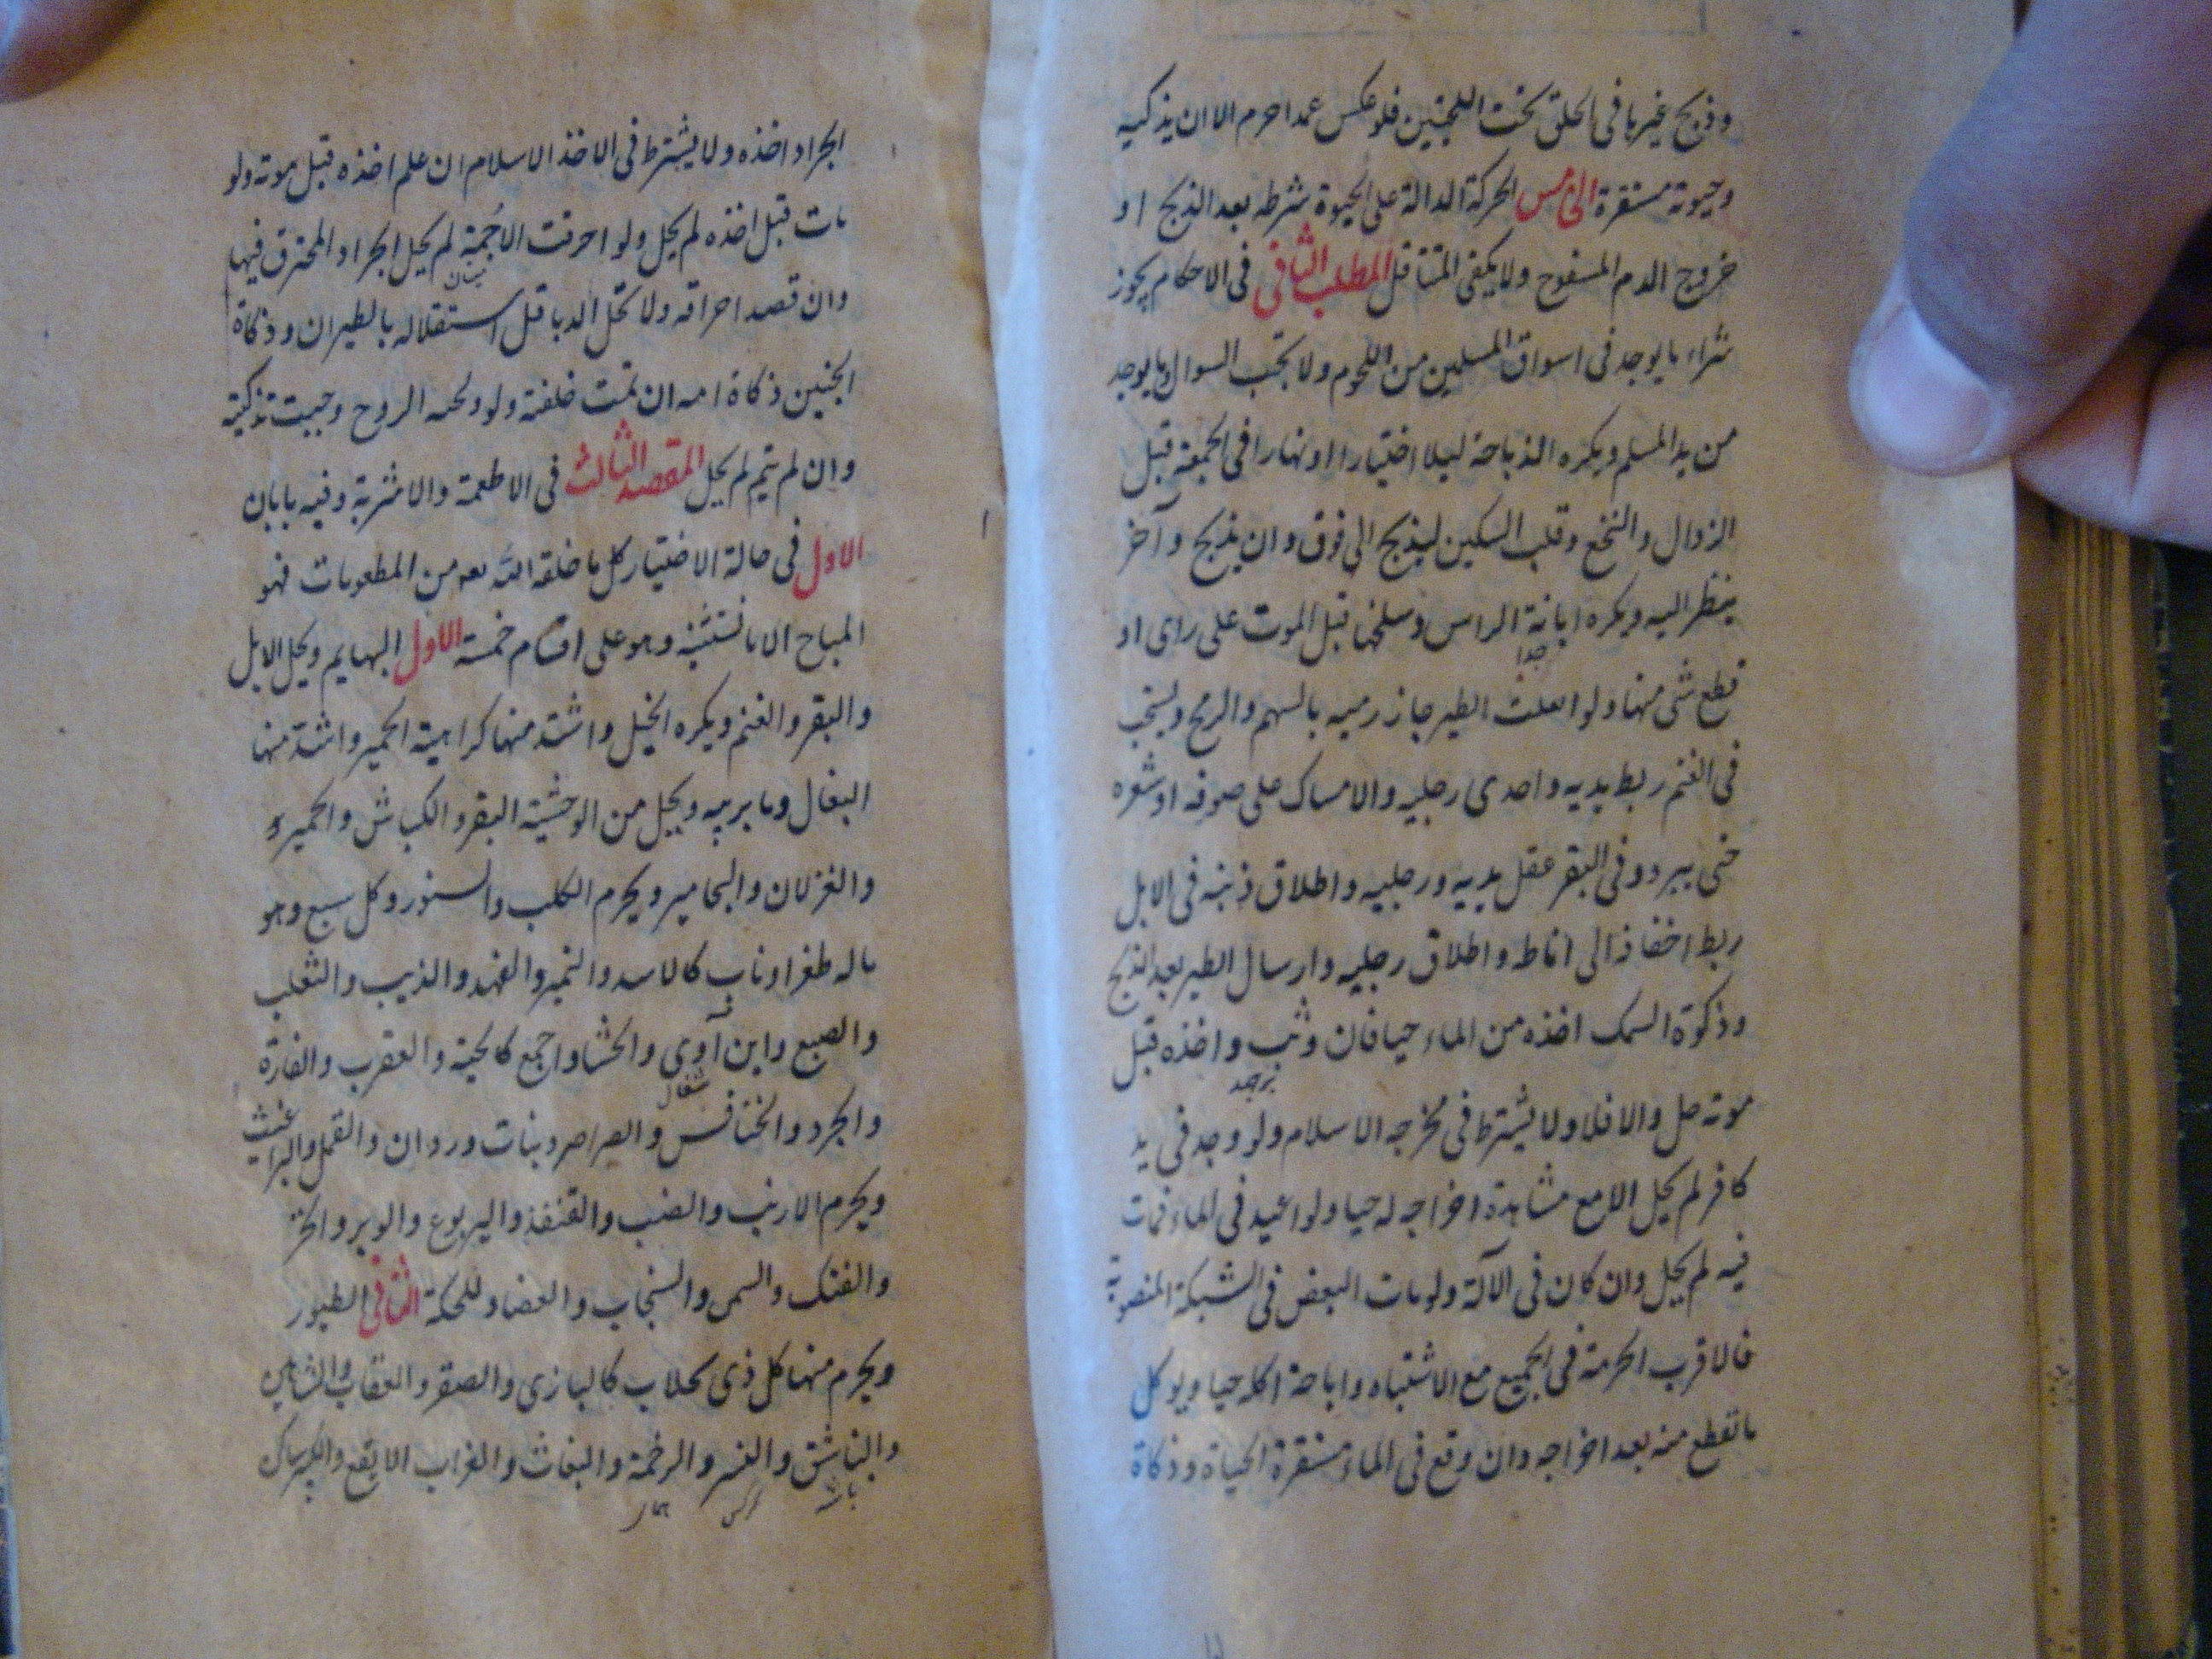 وذبح غيرها فى الحلق تحت اللحيتين فلو عكس عمدا حرم الا ان يذكيه
وحيوته مستقرة الخامس الحركة الدالة على الحيوة شرطه بعد الذبح او
خروج الدم المسفوح ولا يكفى المتثاقل المطلب الثانى فى الاحكام يجوز
شراء ما يوجد فى اسواق المسلمين من اللحوم ولا يجب السوال وما يوجد
من يد المسلم ويكره الذباحة ليلا اختيارا او نهارا فى الجمعة قبل
الزوال والنخع وقلب السكين ليذبح الى فوق وان يذبح وآخر
ينظر اليه ويكره ابانة الراس وسلخها قبل الموت على راى او
جدا
قطع شى منها ولو انفلت الطير جاز رميه بالسهم والرمح ويستحب
فى الغنم ربط يديه واحدى رجليه والامساك على صوفه او شعره
حتى يبرد وفى البقر عقل يديه ورجليه واطلاق ذنبه فى الابل
ربط اخفافه الى اباطه واطلاق رجليه وارسال الطير بعد الذبح
وذكوة السمك اخذه من الماء حيا فان وثب واخذه قبل
موته حل والا فلا ولا يشترط فى مخرجه الاسلام ولو وجد فى يد
كافر لم يحل الا مع مشاهدة اخراجه له حيا ولو اعيد فى الماء فمات
فيه لم يحل وان كان فى الآلة ولو مات البعض فى الشبكة المنصوبة
فالاقرب الحرمة فى الجميع مع الاشتباه واباحة اكله حيا ويوكل
ما تقطع منه بعد اخراجه وان وقع فى الماء مستقرة الحياة وذكاة
الجراد اخذه ولا يشترط فى الاخذ الاسلام ان علم اخذه قبل موته ولو
مات قبل اخذه لم يحل ولو احرقت الاجمة لم يحل الجراد المحترق فيها
وان قصد احراقه ولا تحل الدبا قبل استقلاله بالطيران وذكاة
الجنين ذكاة امه ان تمت خلقته ولو ولجه الروح وجبت تذكيته
وان لم يتم لم يحل المقصد الثالث فى الاطعمة والاشربة وفيه بابان
الاول فى حالة الاختيار كل ما خلقه الله من المطعومات فهو
المباح الا ما نستثنيه وهو على اقسام خمسة الاول البهايم ويحل الابل
والبقر والغنم ويكره الخيل واشد منها كراهية الحمير واشد منها
البغال وما يربيه ويحل من الوحشية البقر والكباش والحمير
والغزلان واليحامير ويحرم الكلب والسنور وكل سبع وهو
ماله ظفر او ناب كالاسد والنمير والفهد والذيب والثعلب
والضبع وابن آوى والحشار اجمع كالحية والعقرب والفارة
شغال
والجرد والخنافس والصراصر وبنات وردوان والقمل والبراغيث
ويحرم الارنب والضب والقنفذ واليربوع والوبر والخز
والفنك والسمور والسنجاب والعضاء واللحكة الثانى الطيور
ويحرم منها كل ذى مخلاب كالبازى والصقر والعقاب والشاهين
والباشق والنسر والرخمة والبغاث والغراب الابقع والكبير